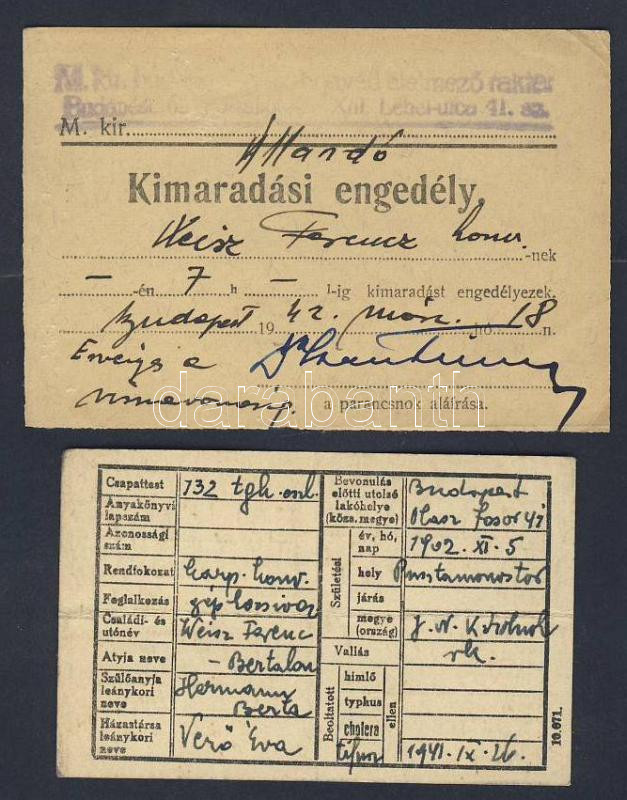 M. kir. élelmező raktár
Budapest XIII. Lehel-utca 41. sz.
M. kir.
Állandó
Kimaradási engedély.
Weisz Ferencz honv. -nek
— -én 7 h — l-ig kimaradást engedélyezek.
Budapest 1942. márc. hó 18 n.
Érvényes a
visszavonásig.
a parancsnok aláírása.
darabanth
Csapattest 132 tgh.
Anyakönyvi lapszám
Azonossági szám
Rendfokozat karp. honv.
Foglalkozás
Családi- és utónév Weisz Ferenc
Atyja neve - Bertalan
Szülőanyja leánykori neve Hermann Berta
Házastársa leánykori neve Verő Éva
Bevonulás előtti utolsó lakóhelye (közs. megye) Budapest
Olasz fasor 41
Születési
év, hó, nap 1902. XI. 5
hely Pusztamonostor
járás
megye (ország) J. N. K. Szolnok
Vallás rk.
Beoltatott
himlő
typkus
cholera
ellen
tífus 1941. IX. 26.
10.671.